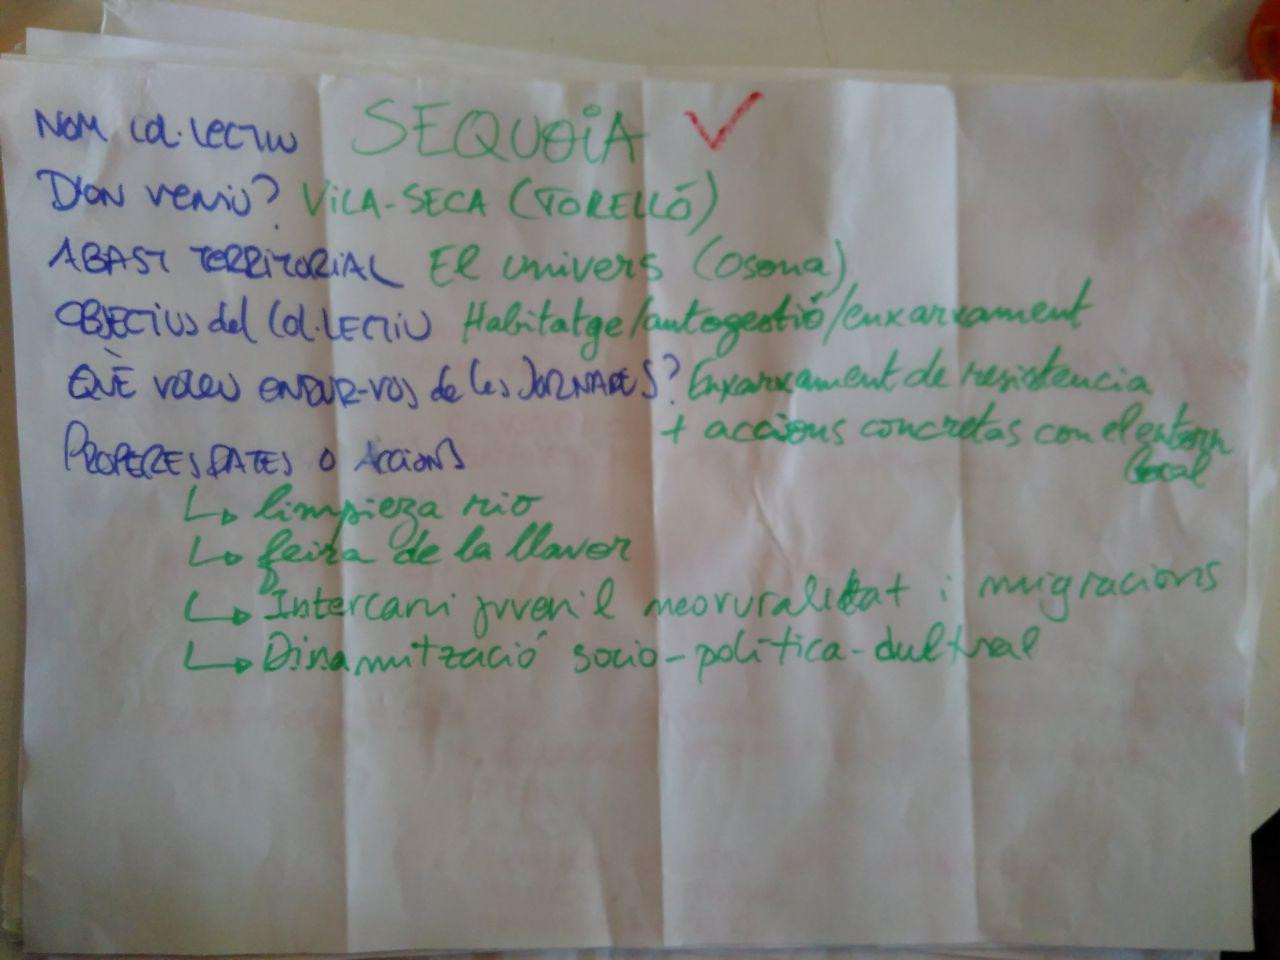 NOM COL·LECTIU SEQUOiA
D'ON VENIU? ViLA-SECA (TORELLÓ)
ABAST TERRITORIAL El univers (Osona)
OBJECTIUS del COL·LECTIU Habitatge/autogestió/enxarxament
QUÈ VOLEU ENDUR-VOS de les JORNADES? Enxarxament de resistencia
+ accions concretas con el entorn
local
PROPERES DATES O ACCIONS
↳ limpieza rio
↳ feira de la llavor
↳ Intercanvi juvenil neoruralitat i migracions
↳ Dinamització socio-política-cultural